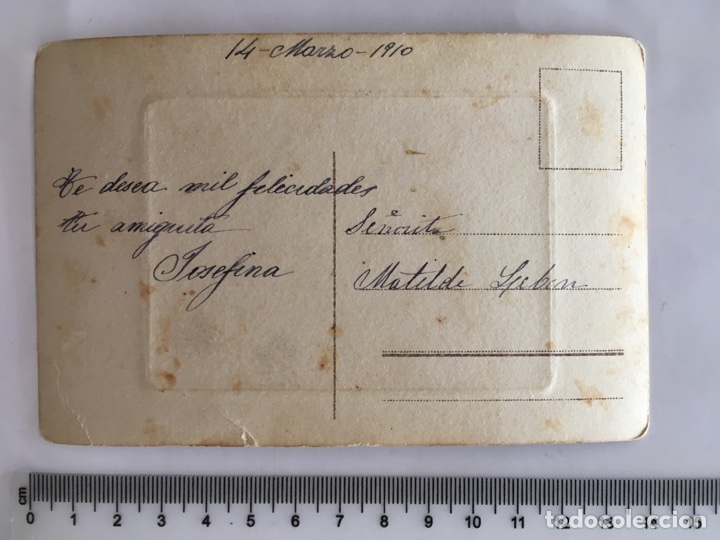 14-Marzo-1910
Te desea mil felicidades
tu amiguita
Josefina
Señorita
Matilde
cm
0 1 2 3 4 5 6 7 8 9 10 11 12 13 14 15
todocoleccion.net